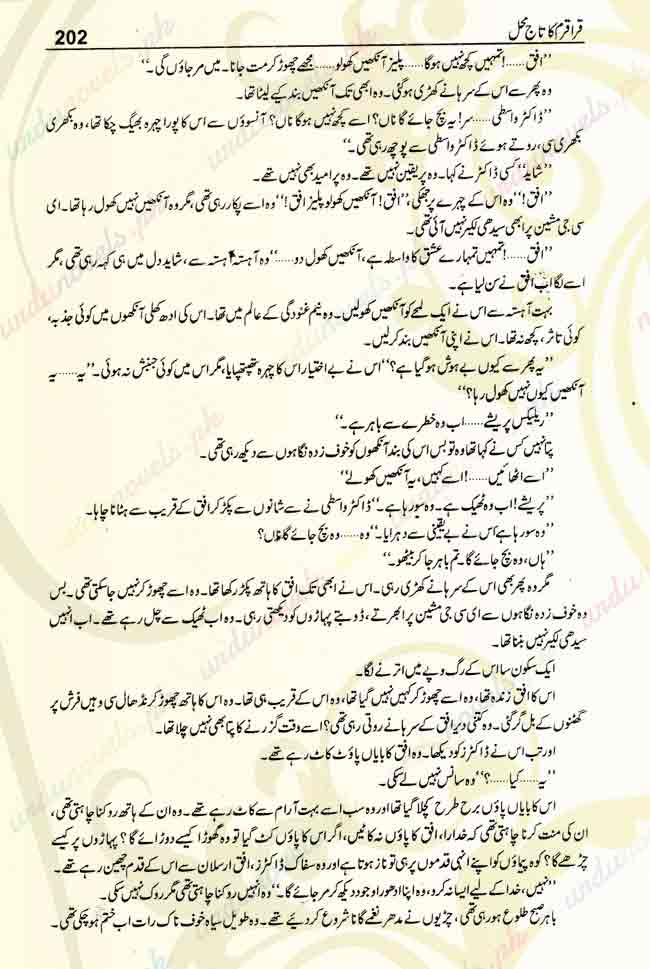 قراقرم کا تاج محل
202
”افق......! تمہیں کچھ نہیں ہوگا...... پلیز آنکھیں کھولو...... مجھے چھوڑ کر مت جانا۔ میں مر جاؤں گی۔“
وہ پھر سے اس کے سرہانے کھڑی ہوگئی۔ وہ ابھی تک آنکھیں بند کیے لیٹا تھا۔
”ڈاکٹر واسطی...... سر! یہ بچ جائے گا ناں؟ اسے کچھ نہیں ہوگا ناں؟ آنسوؤں سے اس کا پورا چہرہ بھیگ چکا تھا، وہ بکھری
بکھری سی، روتے ہوئے ڈاکٹر واسطی سے پوچھ رہی تھی۔“
”شاید“ کسی ڈاکٹر نے کہا۔ وہ پر یقین نہیں تھے۔ وہ پر امید بھی نہیں تھے۔
”افق!“ وہ اس کے چہرے پر جھکی، ”افق! آنکھیں کھولو پلیز افق!“ وہ اسے پکار رہی تھی، مگر وہ آنکھیں نہیں کھول رہا تھا۔ ای
سی جی مشین پر ابھی سیدھی لکیر نہیں آئی تھی۔
”افق......! تمہیں تمہارے عشق کا واسطہ ہے، آنکھیں کھول دو......“ وہ آہستہ آہستہ سے، شاید دل میں ہی کہہ رہی تھی، مگر
اسے لگا اب افق نے سن لیا ہے۔
بہت آہستہ سے اس نے ایک لمحے کو آنکھیں کھولیں۔ وہ نیم غنودگی کے عالم میں تھا۔ اس کی ادھ کھلی آنکھوں میں کوئی جذبہ،
کوئی تاثر، کچھ نہ تھا۔ اس نے اپنی آنکھیں بند کر لیں۔
”یہ پھر سے کیوں بے ہوش ہو گیا ہے؟“ اس نے بے اختیار اس کا چہرہ تھپتھپایا، مگر اس میں کوئی جنبش نہ ہوئی۔ ”یہ...... یہ
آنکھیں کیوں نہیں کھول رہا؟“
”ریلیکس پریشے...... اب وہ خطرے سے باہر ہے۔“
پتا نہیں کس نے کہا تھا وہ تو بس اس کی بند آنکھوں کو خوف زدہ نگاہوں سے دیکھ رہی تھی۔
”اسے اٹھائیں......! اسے کہیں، یہ آنکھیں کھولے“
”پریشے! اب وہ ٹھیک ہے۔ وہ سو رہا ہے۔“ ڈاکٹر واسطی نے اسے شانوں سے پکڑ کر افق کے قریب سے ہٹانا چاہا۔
”وہ سو رہا ہے اس نے بے یقینی سے دہرایا۔ ”وہ...... وہ بچ جائے گا ناں؟
”ہاں، وہ بچ جائے گا۔ تم باہر جا کر بیٹھو۔“
مگر وہ پھر بھی اس کے سرہانے کھڑی رہی۔ اس نے ابھی تک افق کا ہاتھ پکڑ رکھا تھا۔ وہ اسے چھوڑ کر نہیں جاسکتی تھی۔ بس
وہ خوف زدہ نگاہوں سے ای سی جی مشین پر ابھرتے، ڈوبتے پہاڑوں کو دیکھتی رہی۔ وہ اب ٹھیک سے چل رہے تھے۔ اب انہیں
سیدھی لکیر نہیں بننا تھا۔
ایک سکون سا اس کے رگ و پے میں اترنے لگا۔
اس کا افق زندہ تھا، وہ اسے چھوڑ کر کہیں نہیں گیا تھا، وہ اس کے قریب ہی تھا۔ وہ اس کا ہاتھ چھوڑ کر نڈھال سی وہیں فرش پر
گھٹنوں کے بل گر گئی۔ وہ کتنی دیر افق کے سرہانے روتی رہی تھی؟ اسے وقت گزرنے کا پتا بھی نہیں چلا تھا۔
اور تب اس نے ڈاکٹرز کو دیکھا۔ وہ افق کا بایاں پاؤں کاٹ رہے تھے۔
”یہ...... کیا......؟“ وہ سانس نہیں لے سکی۔
اس کا بایاں پاؤں برح طرح کچلا گیا تھا اور وہ سب اسے بہت آرام سے کاٹ رہے تھے۔ وہ ان کے ہاتھ روکنا چاہتی تھی،
ان کی منت کرنا چاہتی تھی کہ خدارا، افق کا پاؤں نہ کاٹیں، اگر اس کا پاؤں کٹ گیا تو وہ گھوڑا کیسے دوڑائے گا؟ پہاڑوں پر کیسے
چڑھے گا؟ کوہ پیماؤں کو اپنے انہی قدموں پر ہی تو ناز ہوتا ہے اور وہ سفاک ڈاکٹرز، افق ارسلان سے اس کے قدم چھین رہے تھے۔
”نہیں، خدا کے لیے ایسا نہ کرو، وہ اپنا ادھورا وجود دیکھ کر مر جائے گا۔“ وہ انہیں روکنا چاہتی تھی مگر روک نہیں سکی۔
باہر صبح طلوع ہو رہی تھی، چڑیوں نے مدھر نغمے گانا شروع کر دیے تھے۔ وہ طویل سیاہ خوف ناک رات اب ختم ہو چکی تھی۔
urdunovels.pk